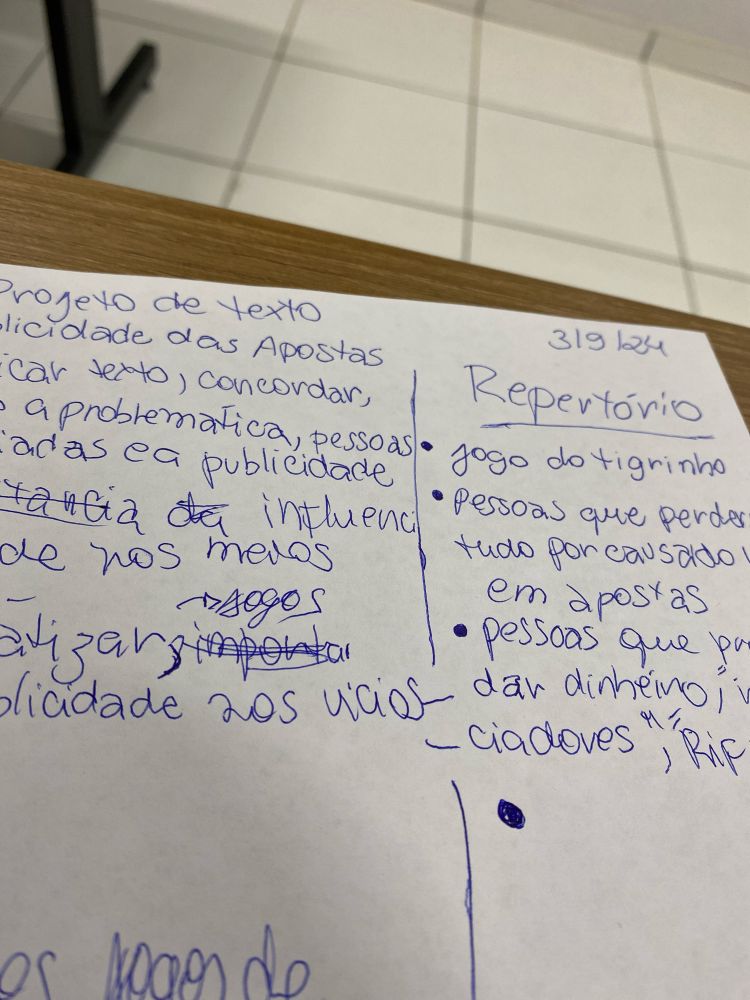 Projeto de texto
licidade das Apostas
icar texto, concordar,
a problemática, pessoas
iadas e a publicidade
influenci
de nos meios
→ jogos
atizar,
blicidade nos vicios
3/9/24
Repertório
• jogo do tigrinho
• pessoas que perder
tudo por causa do v
em apostas
• pessoas que pr
dar dinheiro, "in
ciadores", Rif
•